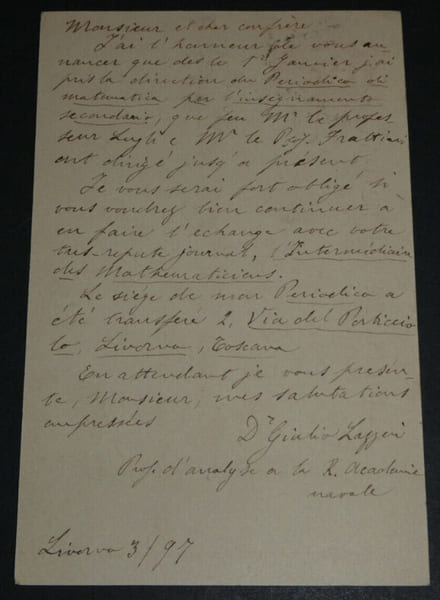 Monsieur et cher confrère
J'ai l'honneur de vous an
nancer que dès le 1r Janvier j'ai
pris la direction du Periodico di
matematica per l'insegnamento
secondario, que feu Mr le profes
seur Lugli e Mr le Prof. Frattini
ont dirigé jusq'a présent.
Je vous serai fort obligé si
vous voudrez bien continuer à
en faire l'échange avec votre
tres-repute journal, l'Intermédiaire
des Mathematiciens.
Le siége de mon Periodico a
été transferé 2, Via del Porticcio
lo, Livorno, Toscana
En attendant je vous présen
te, Monsieur, mes salutations
empressées
Dr Giulio Lazzeri
Prof. d'analyse a la R. Academie
navale
Livorno 3/97